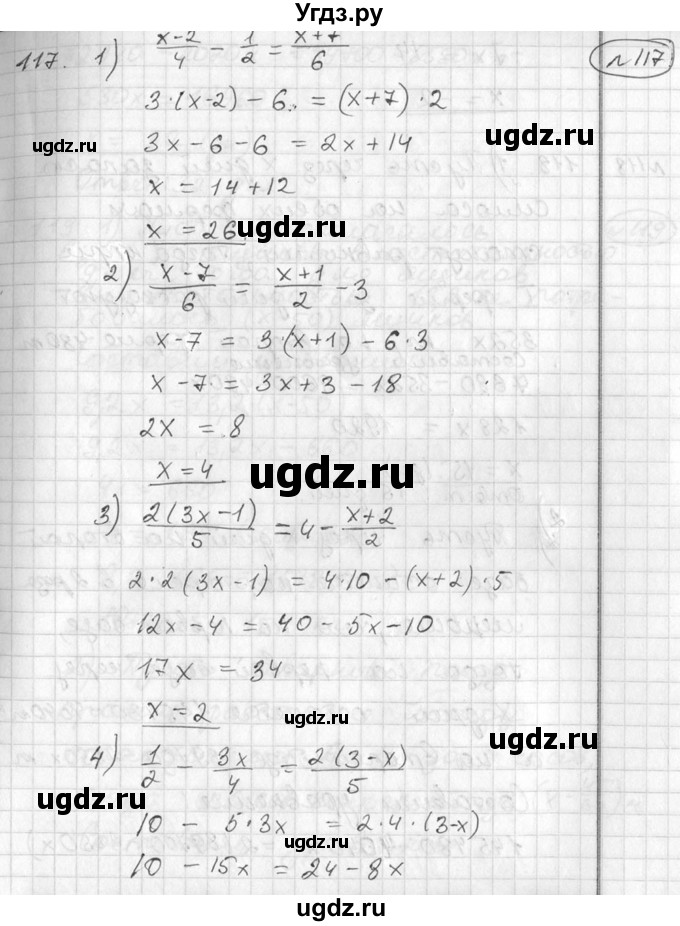 Угдз.ру
117. 1) (x-2)/4 - 1/2 = (x+7)/6
№117
3·(x-2) - 6 = (x+7)·2
ugdz.ru
ugdz.ru
3x - 6 - 6 = 2x + 14
ugdz.ru
x = 14 + 12
x = 26
2) (x-7)/6 = (x+1)/2 - 3
x-7 = 3·(x+1) - 6·3
ugdz.ru
x - 7 = 3x + 3 - 18
2x = 8
x = 4
ugdz.ru
3) 2(3x-1)/5 = 4 - (x+2)/2
2·2(3x-1) = 4·10 - (x+2)·5
12x - 4 = 40 - 5x - 10
17x = 34
x = 2
ugdz.ru
4) 1/2 - 3x/4 = 2(3-x)/5
ugdz.ru
ugdz.ru
10 - 5·3x = 2·4·(3-x)
10 - 15x = 24 - 8x
ugdz.ru